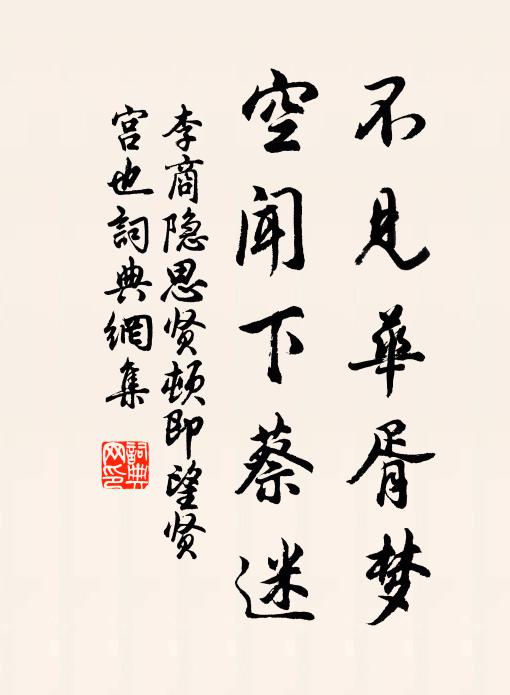 不见华胥梦
空闻下蔡迷
李商隐思贤顿即望贤
宫也詞典網集
詞典
网印